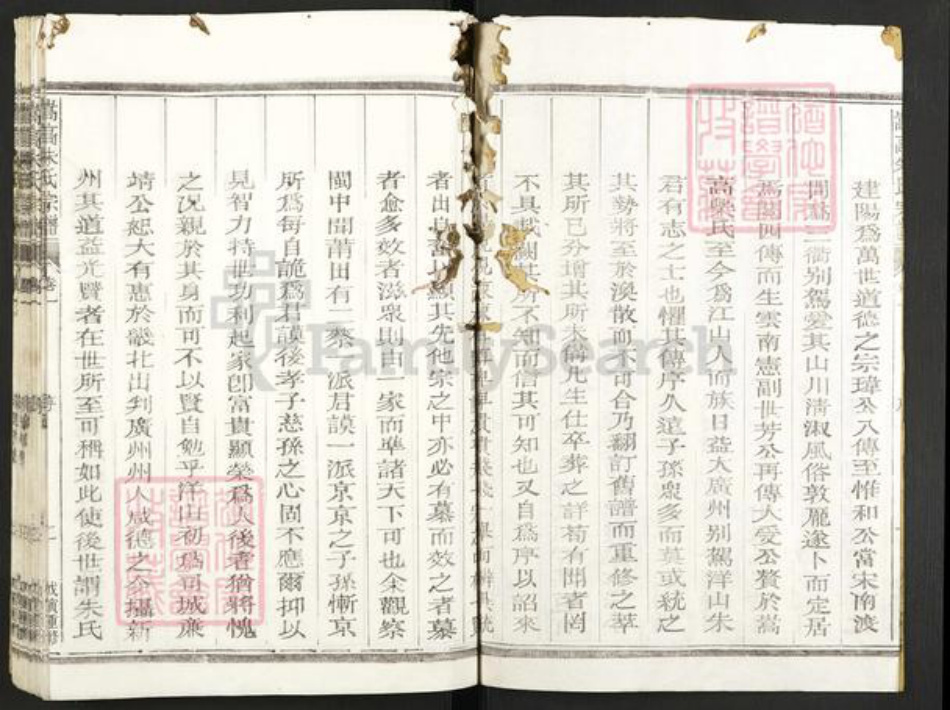 建陽爲萬世道德之宗瑋公八傳至惟和公當宋南渡
間爲三衢別駕愛其山川淸淑風俗敦龐遂卜而定居
焉閱四傳而生雲南憲副世芳公再傳人受公贅於嵩
高柴氏至今爲江山人而族日益大廣州別駕洋山朱
君有志之士也懼其傳序久遠子孫衆多而莫或統之
其勢將至於渙散而不可合乃翻訂舊譜而重修之萃
其所已分增其所未備凡生仕卒葬之詳苟有聞者罔
不具載闕其所不知而信其可知也又自爲序以詔來
者出自高顯其先他宗之中亦必有慕而效之者慕
者愈多效者滋衆則由一家而準諸天下可也余觀察
閩中聞莆田有二蔡一派君謨一派京京之子孫慚京
所爲每自詭爲君謨後孝子慈孫之心固不應爾抑以
見智力特世功利起家卽富貴顯榮爲人後者猶將愧
之况親於其身而可不以賢自勉乎洋山初爲可城廉
靖公恕大有惠於畿北出判廣州州人咸德之今攝新
州其道益光賢者在世所至可稱如此使後世謂朱氏
嵩高朱氏宗譜
卷一
FamilySearch